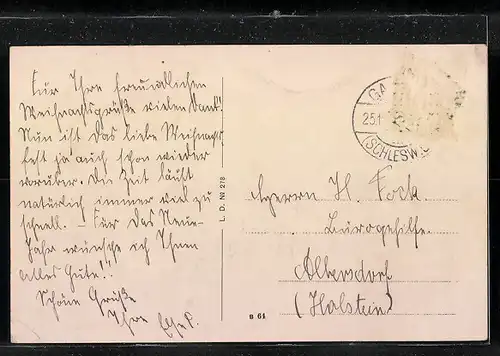 Für Ihre freundlichen
Weihnachtsgrüße vielen Dank!
Nun ist das liebe Weihnachts-
fest ja auch schon wieder
vorüber. Die Zeit läuft
natürlich immer viel zu
schnell. – Für das Neue
Jahr wünsche ich Ihnen
alles Gute!
Schöne Grüße
Ihre
L. D. № 218
GA
25.1
(SCHLESW
Herrn H. Fock
Bürogehilfe.
Albersdorf
(Holstein)
B 61